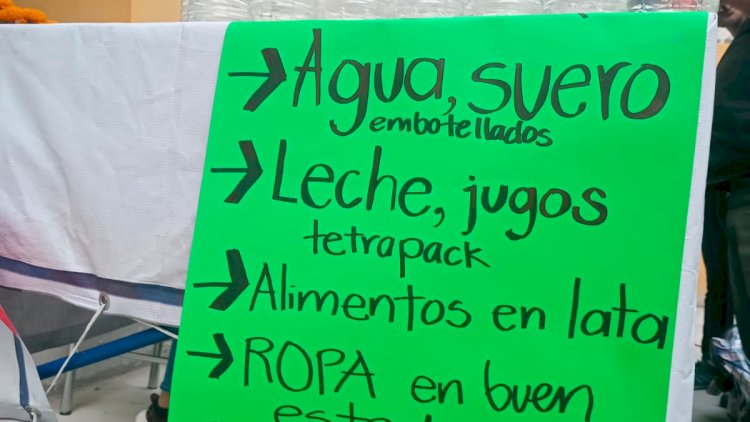 → Agua, suero
embotellados
→ Leche, jugos
tetrapack
→ Alimentos en lata
→ ROPA en buen